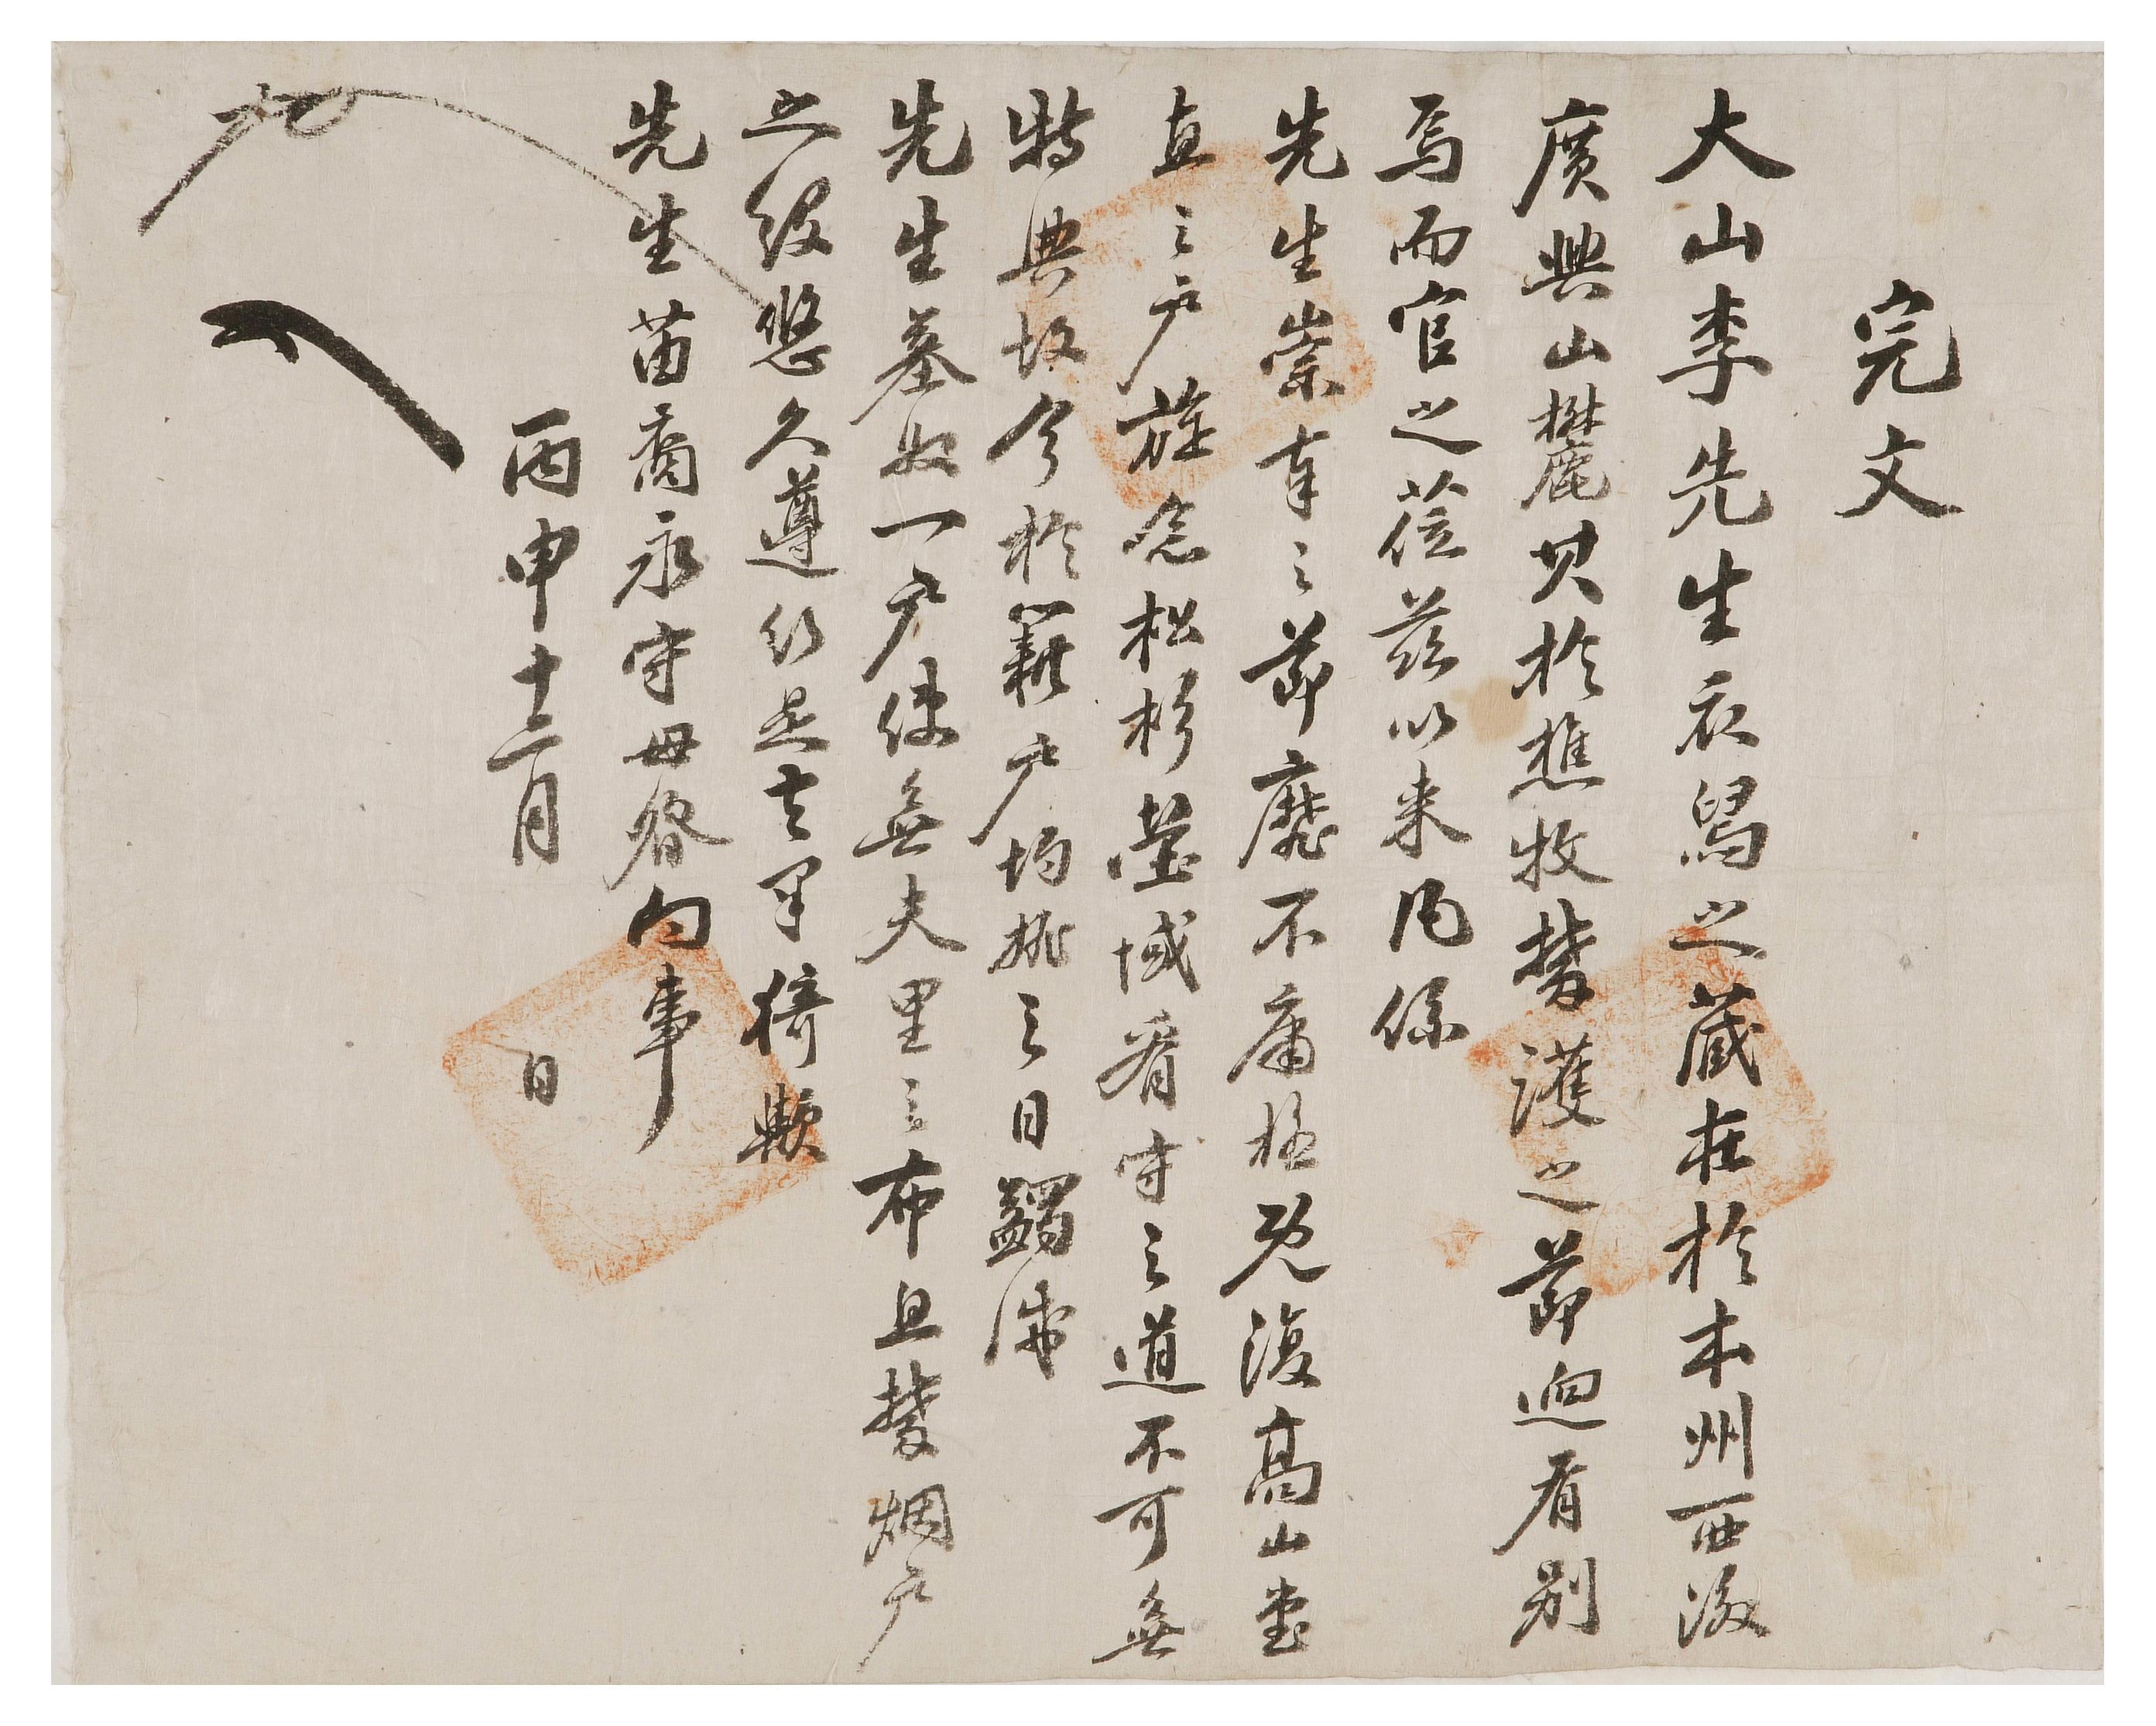 完文
大山李先生衣舃之藏在於本州西後
廣興山麓其於樵牧禁護之節迥看別
焉而官之莅玆以来凡係
先生崇奉之節靡不庸極既復高山堂
直之戶旋念松杉塋域看守之道不可無
特典故今於籍戶均排之日蠲減
先生墓奴一戶使無夫里之布且禁烟戶
之役悠久遵行是去乎猗歟
先生苗裔永守毋替向事
丙申十二月
日